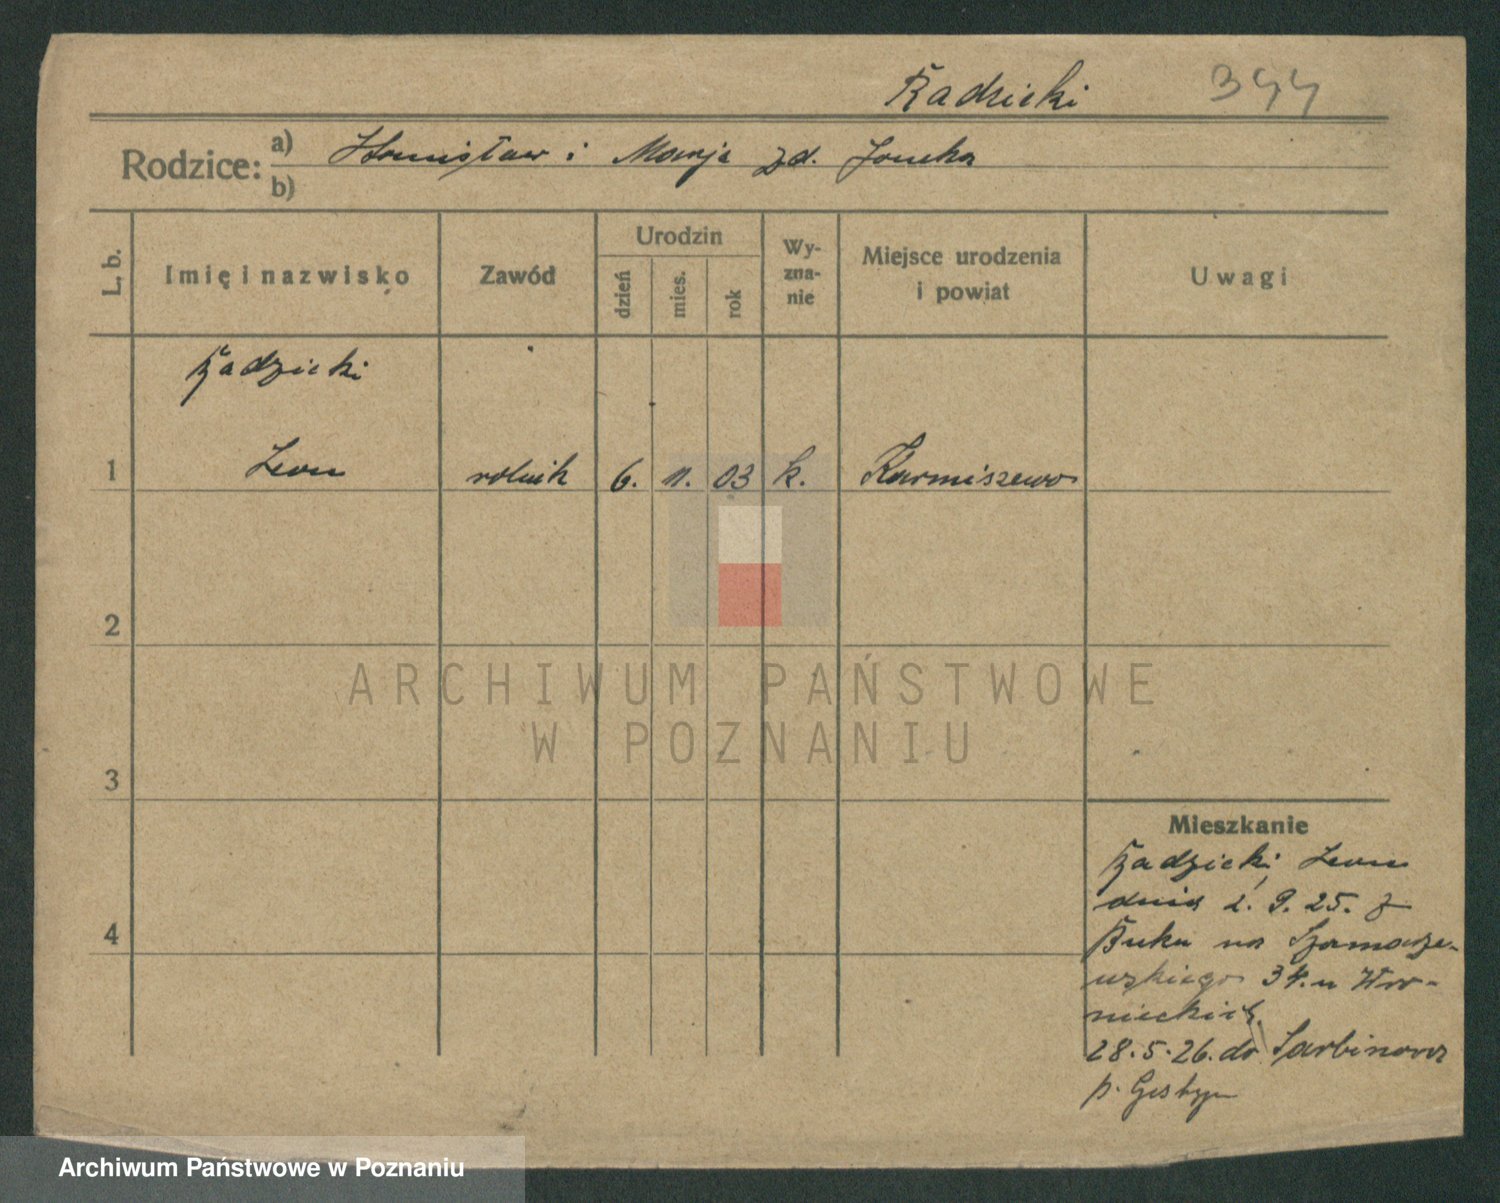 Radzicki 344
Rodzice: a) Stanisław i Marja zd.
b)
L. b. Imię i nazwisko Zawód Urodzin Wy-zna-nie Miejsce urodzenia i powiat Uwagi
dzień mies. rok
Radzicki
1 Leon rolnik 6. 11. 03 k. Karmiszewo
2
3
4
Mieszkanie
Radzicki Leon
dnia 2. 9. 25. z
Buku na Szamarze-
wskiego 34. u Wro-
nieckich
28.5.26. do Sarbinowa
p. Gostyn
ARCHIWUM PAŃSTWOWE
W POZNANIU
Archiwum Państwowe w Poznaniu